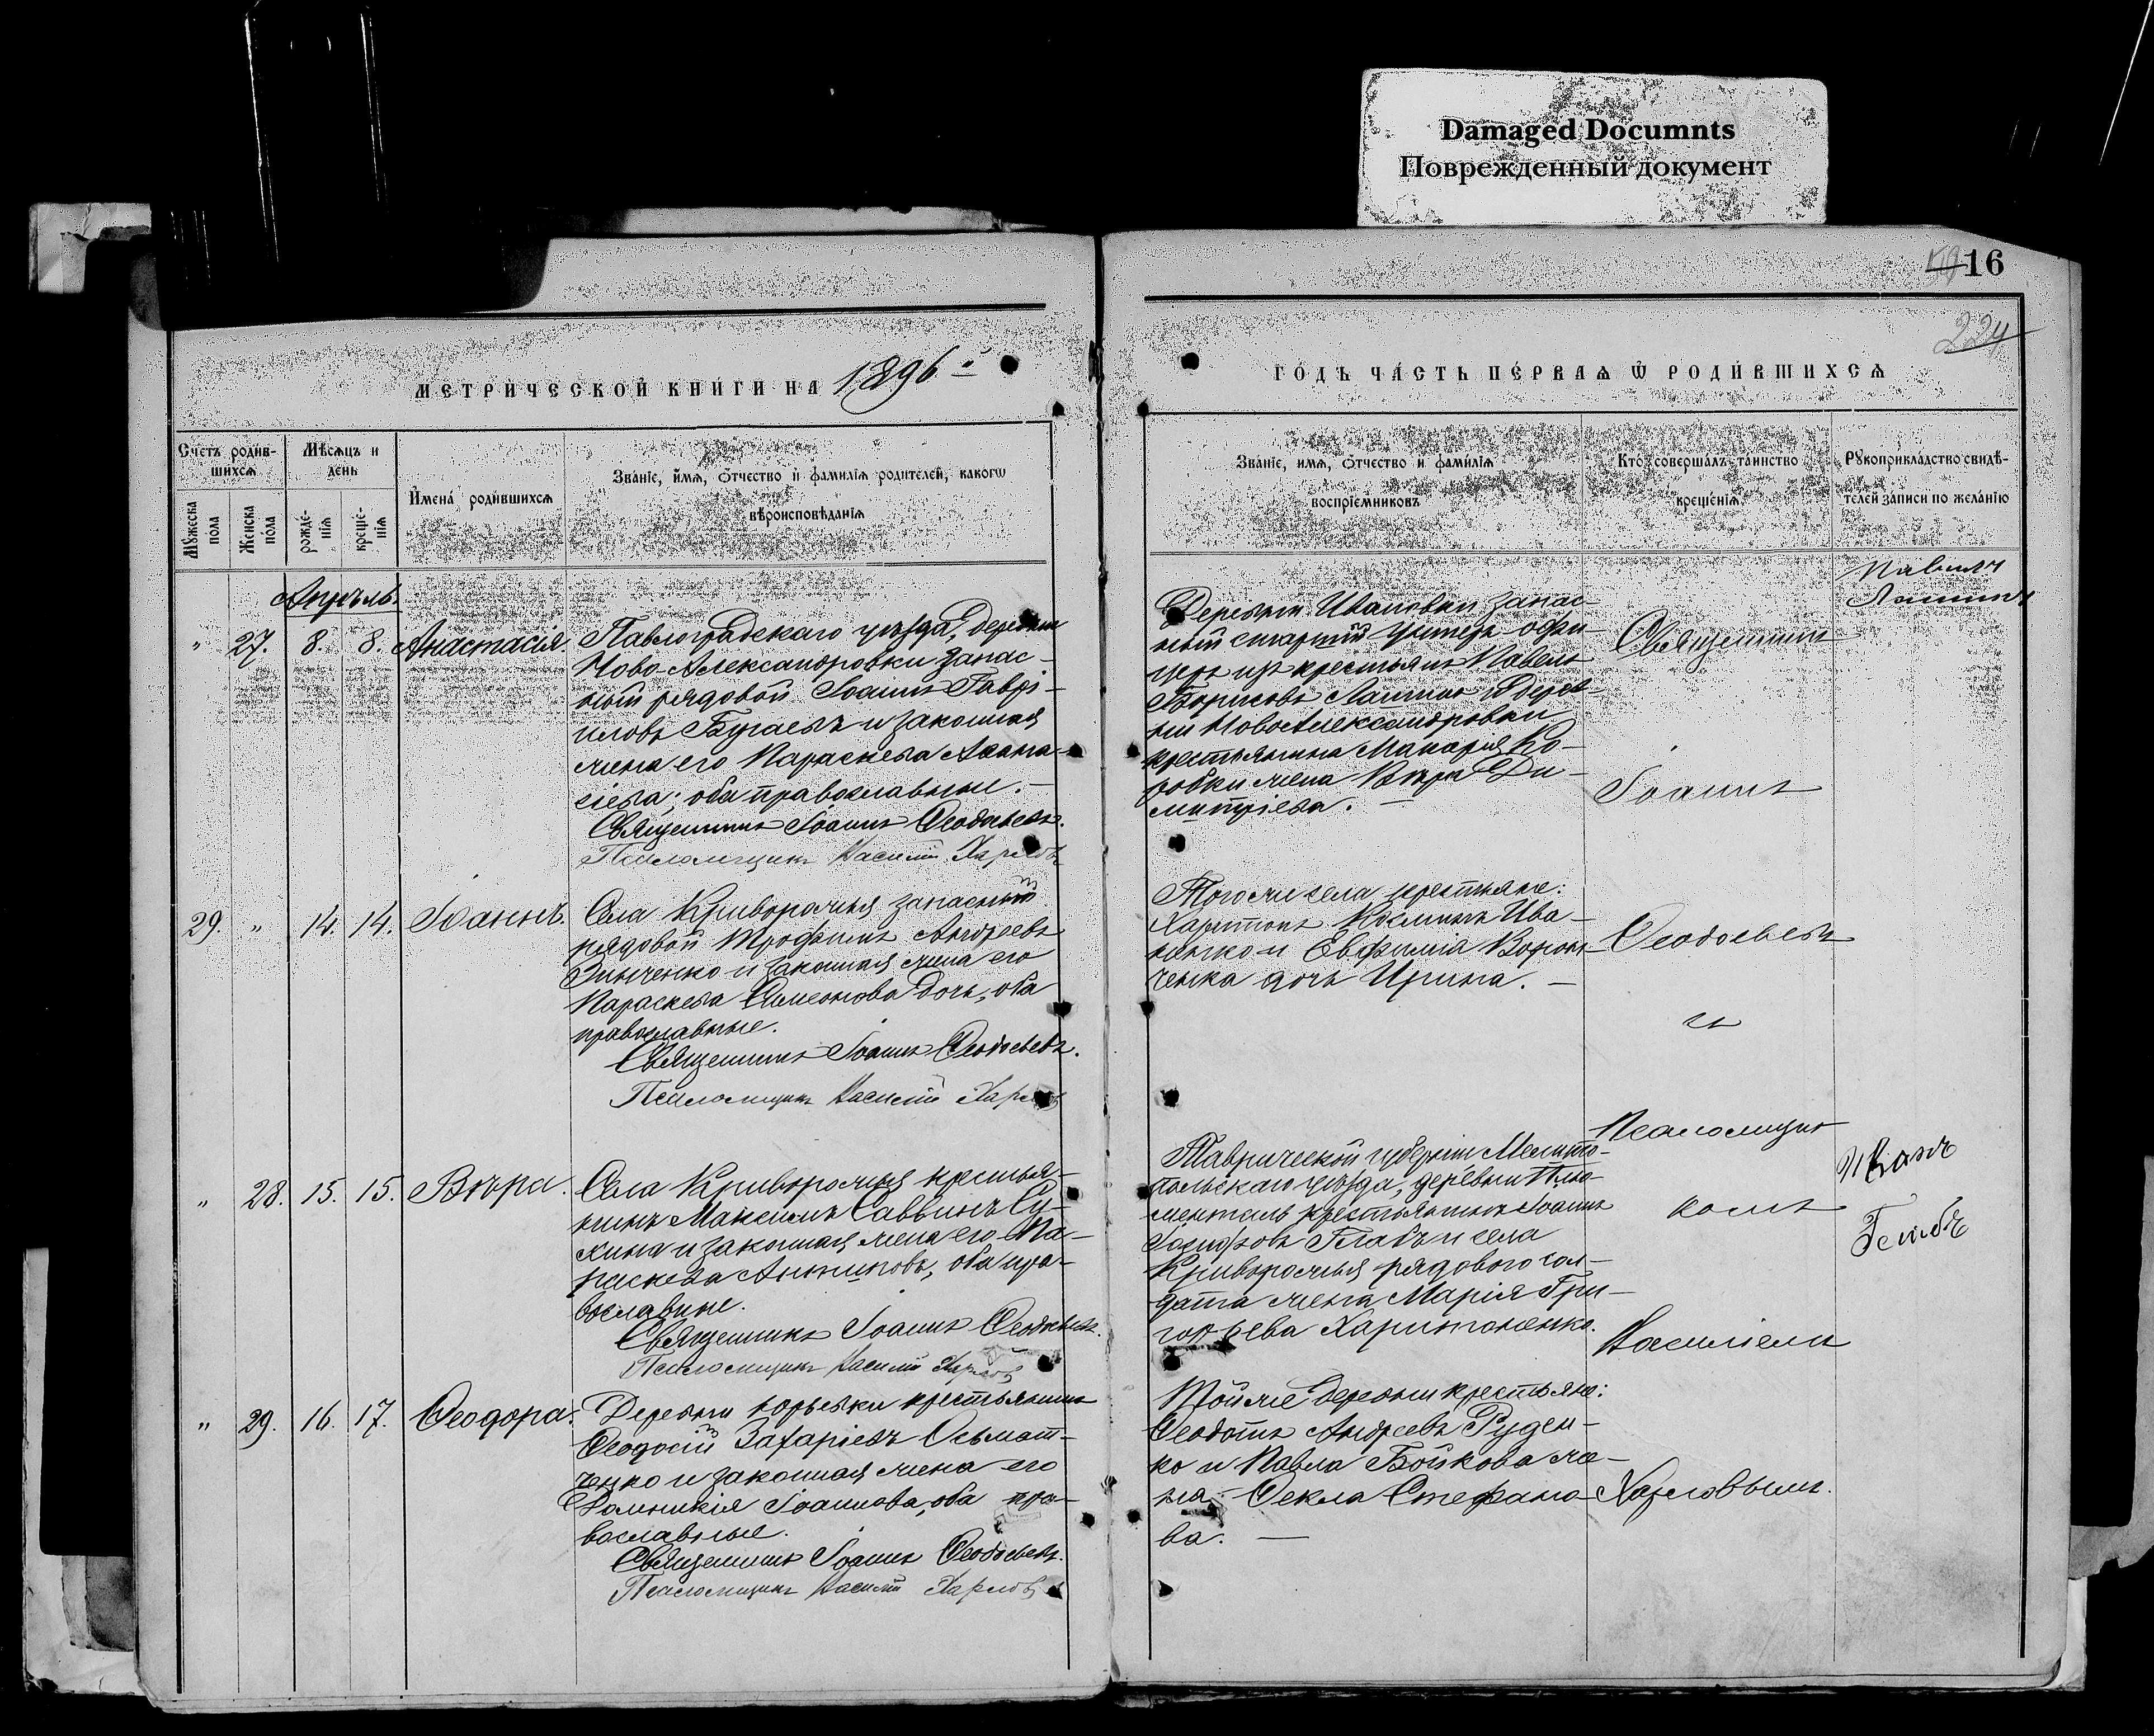 Damaged Documnts
Поврежденный документ
16
224
МЕТРИЧЕСКОЙ КНИГИ НА 1896й
ГОДЪ ЧАСТЬ ПЕРВАѦ Ѿ РОДИВШИХСѦ
Счетъ родив-
шихсѧ
Мꙋжеска пола
Женска пола
Мѣсѧцъ и
день
рожде-
нїѧ
креще-
нїѧ
Имена родившихсѧ
Званїе, имѧ, ѻтчество и фамилїѧ родителей, какогѡ
вѣроисповѣданїѧ
Званїе, имѧ, ѻтчество и фамилїѧ
воспрїемниковъ
Кто совершалъ таинство
крещенїѧ
Рꙋкоприкладство свидѣ-
телей записи по желанїю
Апрѣль.
" 27. 8. 8. Анастасія.
Павлоградскаго уѣзда, деревни
Ново-Александровки запас-
ный рядовой Іоаннъ Гаврі-
иловъ Бугаевъ и законная
жена его Параскева Аѳана-
сіева; оба православные.
Священникъ Іоаннъ Ѳеодосьевъ.
Псаломщикъ Василій Харловъ
Деревни Ивановки запас-
ный старшій унтеръ-офи-
церъ изъ крестьянъ Павелъ
Борисовъ и дерев-
ни НовоАлександровки
крестьянина Макарія Ко-
робки жена Вѣра Ди-
митріева. —
Священникъ
Іоаннъ
Павелъ
29. " 14. 14. Іоаннъ.
Села Криворожья запасный
рядовой Трофимъ Андреевъ
Зинченко и законная жена его
Параскева Симеонова дочь, оба
православные.
Священникъ Іоаннъ Ѳеодосьевъ.
Псаломщикъ Василій Харловъ
Того же села крестьяне:
Харитонъ Косминъ Ива-
ненко и Евфимія Ворон-
ченка дочь Ирина. —
Ѳеодосьевъ
съ
" 28. 15. 15. Вѣра.
Села Криворожья крестья-
нинъ Максимъ Саввинъ Су-
хина и законная жена его Па-
раскева Антипова, оба пра-
вославные.
Священникъ Іоаннъ Ѳеодосьевъ.
Псаломщикъ Василій Харловъ
Таврической губерніи Мелито-
польскаго уѣзда, деревни
крестьянинъ Іоаннъ
Іосифовъ и села
Криворожья рядового сол-
дата жена Марія Гри-
горьева Харитоненко.
Псаломщи
комъ
Василіемъ
Иванъ
" 29. 16. 17. Ѳеодора.
Деревни Юрьевки крестьянинъ
Ѳеодосій Захаріевъ Осьмат-
ченко и законная жена его
Домникія Іоаннова, оба пра-
вославные.
Священникъ Іоаннъ Ѳеодосьевъ.
Псаломщикъ Василій Харловъ
Той же деревни крестьяне:
Ѳеодотъ Андреевъ Руден-
ко и Павла Бойкова же-
на — Ѳекла Стефано-
ва. —
Харловымъ.